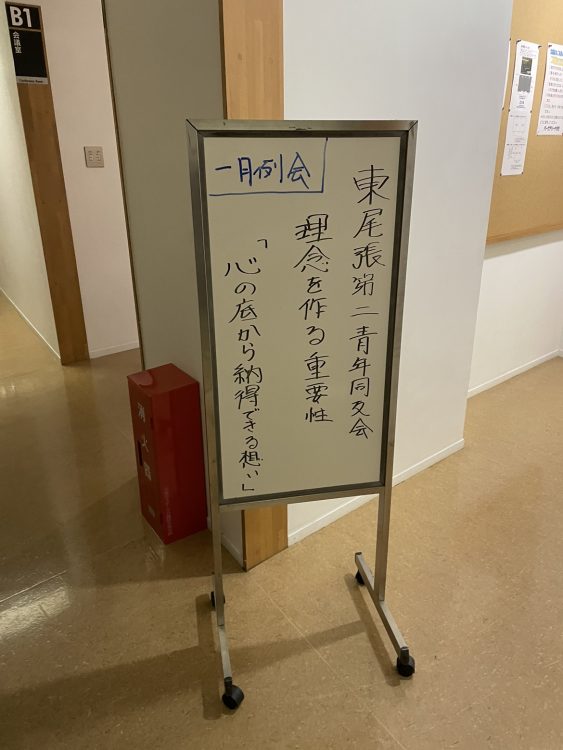 東尾張第二青年同友会
理念を作る重要性
「心の底から納得できる想い」
一月例会
B1
会議室
Conference Room
消火器